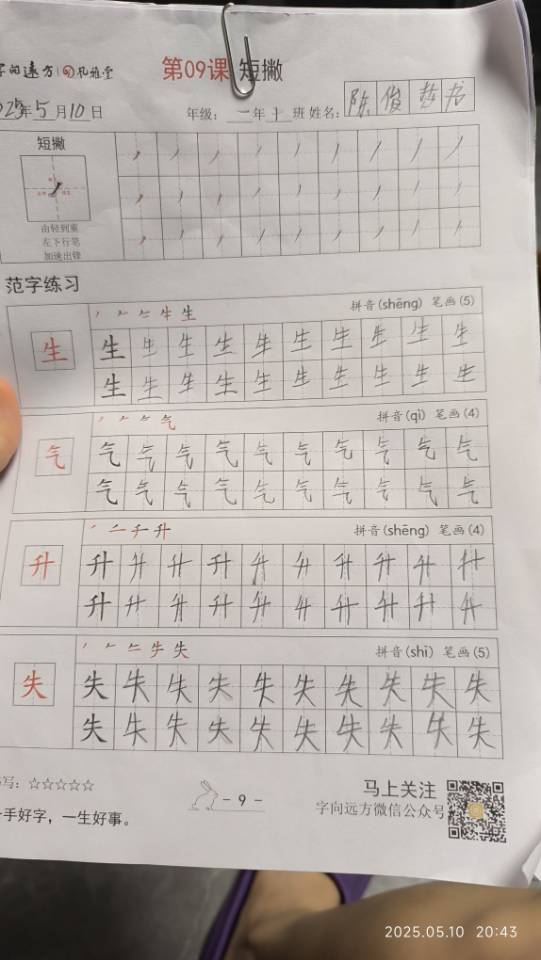 字向远方
第09课 短撇
2025年5月10日 年级: 一年十班 姓名: 陈俊哲书
短撇
由轻到重
左下行笔
加速出锋
范字练习
拼音(shēng) 笔画(5)
生 生 生 生 生 生 生 生 生 生 生
生 生 生 生 生 生 生 生 生 生
拼音(qì) 笔画(4)
气 气 气 气 气 气 气 气 气 气 气
气 气 气 气 气 气 气 气 气 气
拼音(shēng) 笔画(4)
升 升 升 升 升 升 升 升 升 升 升
升 升 升 升 升 升 升 升 升 升
拼音(shī) 笔画(5)
失 失 失 失 失 失 失 失 失 失 失
失 失 失 失 失 失 失 失 失 失
写: ☆☆☆☆☆
手好字，一生好事。
- 9 -
马上关注
字向远方微信公众号
2025.05.10 20:43